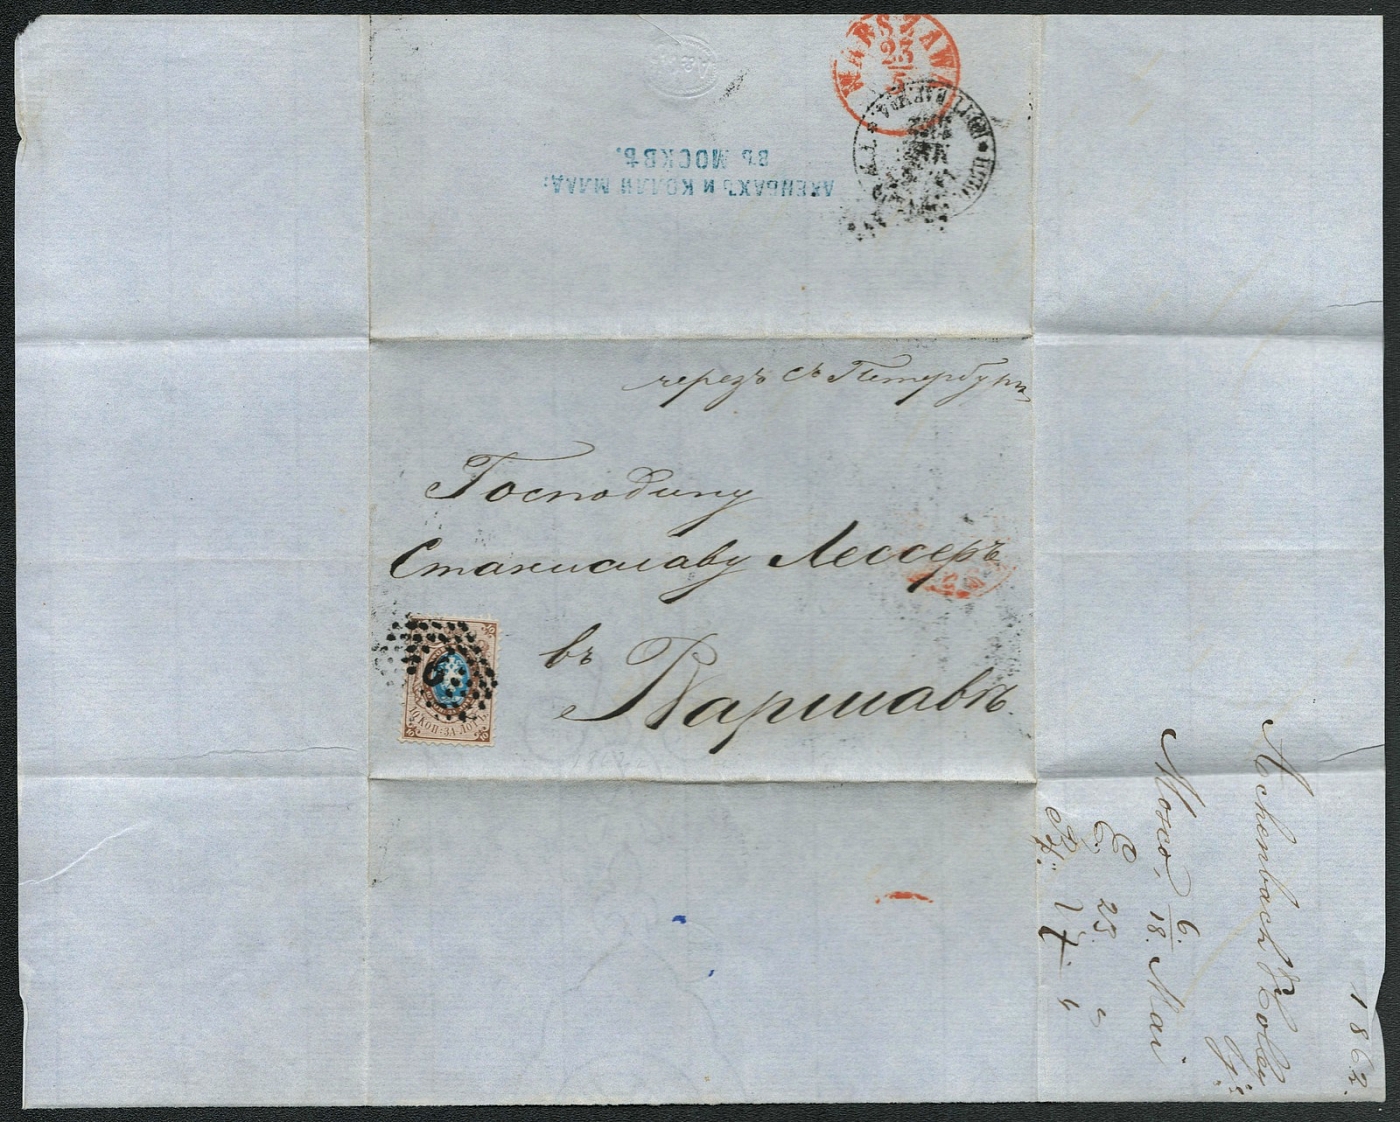 WARSZAWA
23
5
АХЕНБАХЪ И КОЛЛИ МЛАД:
ВЪ МОСКВѢ,
черезъ С Петербургъ
Господину
Станиславу Лессеръ
въ Варшавѣ
10 КОП: ЗА ЛОТЪ
1862
Achenbach & Colley
Moscow, 6/18. Mai
E 23